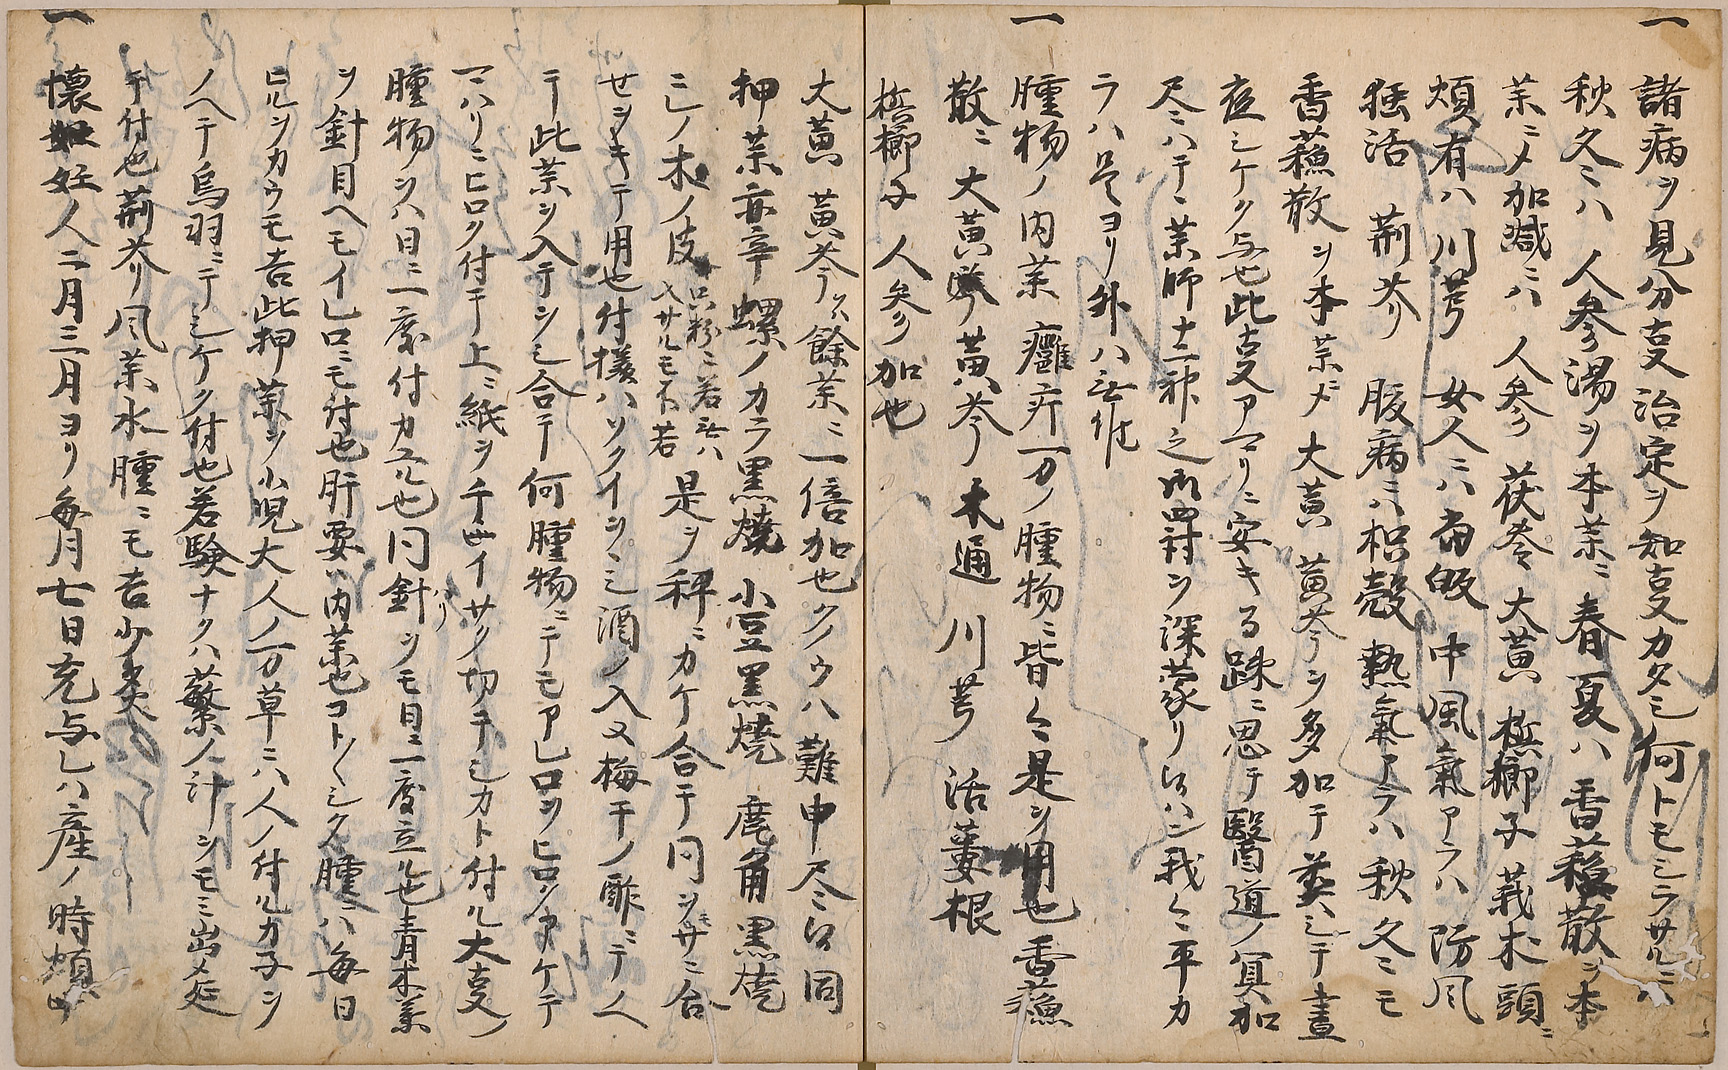 一 諸病ヲ見分支治定ヲ知支カタシ何トモミラサルニハ
秋冬ニハ人参湯ヲ本薬ニ春夏ハ香薷散ヲ本
薬ニメ加減ニハ人参 茯苓 大黄 檳榔子 莪朮 頭ニ
煩有ハ川芎 女人ニハ當皈 中風氣アラハ防風
独活 荊芥 腹病ニハ枳殻 熱氣アラハ秋冬ニモ
香薷散ヲ本薬ド大黄 黄芩ヲ多加テ煎シテ晝
夜シケク与也此支アマリニ安キ
思テ醫道ノ冥加
尽ハテ薬師十二神之御四討ヲ深蒙リ候ハン我々平カ
ラハ是ヨリ外ハ
一 腫物ノ内薬 癰疔一切ノ腫物ニ皆々是ヲ用也香薷
散ニ大黄 黄芩 木通 川芎 活蔞根
檳榔子 人参加也
大黄 黄芩ハ餘薬ニ一倍加也クノウハ難申尽候同
押薬亦辛螺ノカラ黒焼 小豆黒焼 鹿角黒焼
ニレノ木ノ皮 是ヲ秤ニカケ合テ同ヲモサニ合
入サルモ不若
セヲキテ用也付様ハソクイヲミ酒ノ入又梅干ノ酢ニテノ
テ此薬ヲ入テヲシ合テ何腫物ニテモアレ口ヲヒロクアケテ
マハリニヒロク付テ上ニ紙ヲチイサク切テシカト付ル大支ノ
腫物ヲハ日ニ二度付カユル也同針ヲモ日ニ二度立ル也青木葉
ヲ針目ヘモイレ口ニモ付也肝要ハ内薬也コト〱シク腫ニハ毎日
ヒルヲカウモ吉此押薬ヲ小児大人ノ一切草ニハ人ノ付ルカ子ヲ
ノヘテ烏羽ニテシケク付也若験ナクハ蘩ノ汁ヲモミ出メ延
テ付也荊芥リ風薬水腫ニモ吉少炙
一 懐妊人二月三月ヨリ毎月七日充与レハ産ノ時煩